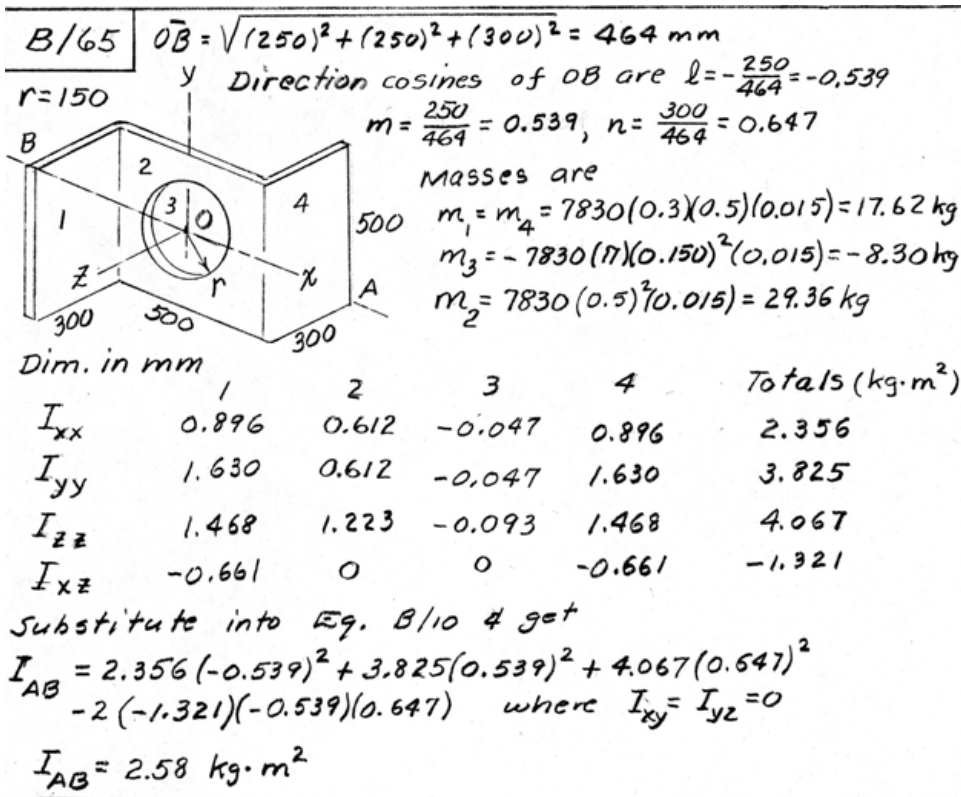 B/65 O̅B̅ = √(250)² + (250)² + (300)² = 464 mm
Direction cosines of OB are l = -250/464 = -0.539
m = 250/464 = 0.539, n = 300/464 = 0.647
r = 150
y
B
2
3
O
4
1
500
z
r
x
A
300
500
300
Dim. in mm
Masses are
m₁ = m₄ = 7830(0.3)(0.5)(0.015) = 17.62 kg
m₃ = -7830(π)(0.150)²(0.015) = -8.30 kg
m₂ = 7830(0.5)²(0.015) = 29.36 kg
1 2 3 4 Totals (kg·m²)
Ixx 0.896 0.612 -0.047 0.896 2.356
Iyy 1.630 0.612 -0.047 1.630 3.825
Izz 1.468 1.223 -0.093 1.468 4.067
Ixz -0.661 0 0 -0.661 -1.321
Substitute into Eq. B/10 & get
I_AB = 2.356(-0.539)² + 3.825(0.539)² + 4.067(0.647)²
-2(-1.321)(-0.539)(0.647) where Ixy = Iyz = 0
I_AB = 2.58 kg·m²